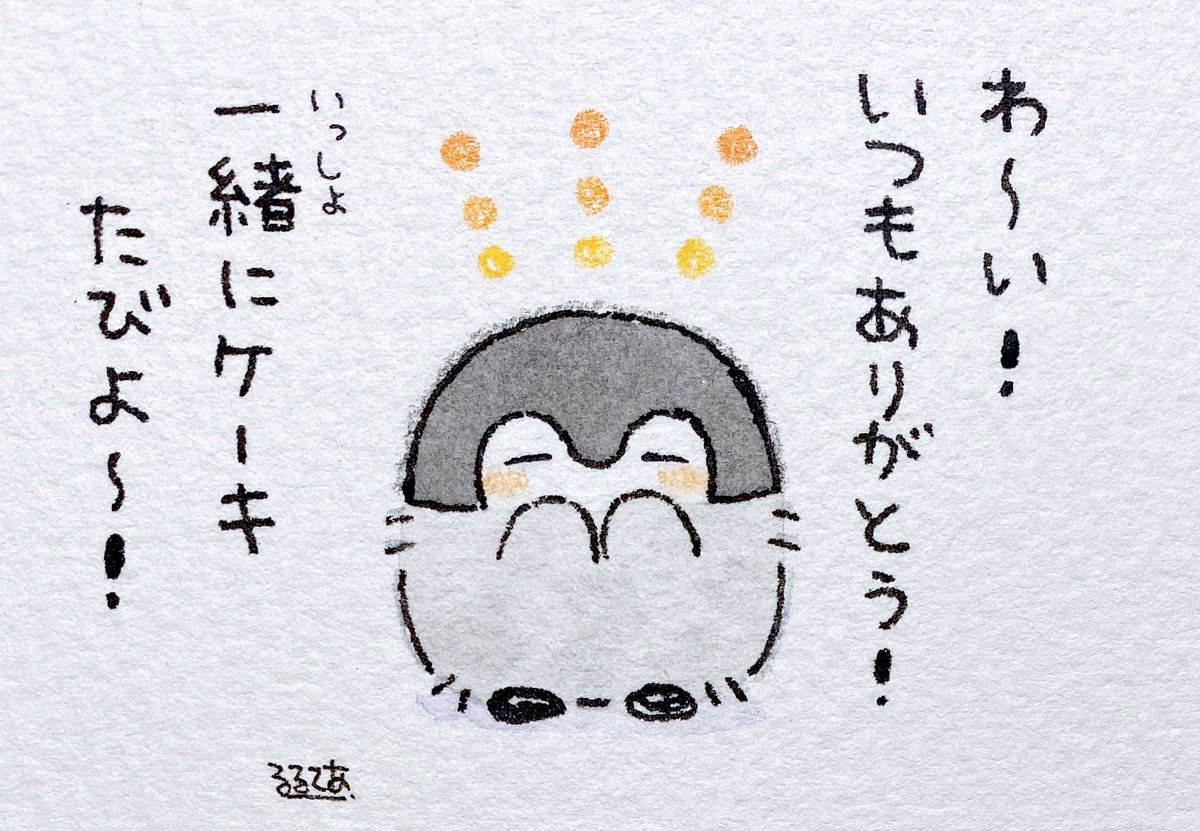 わ〜い!
いつもありがとう!
いっしょ
一緒にケーキ
たびよ〜!
るるてあ